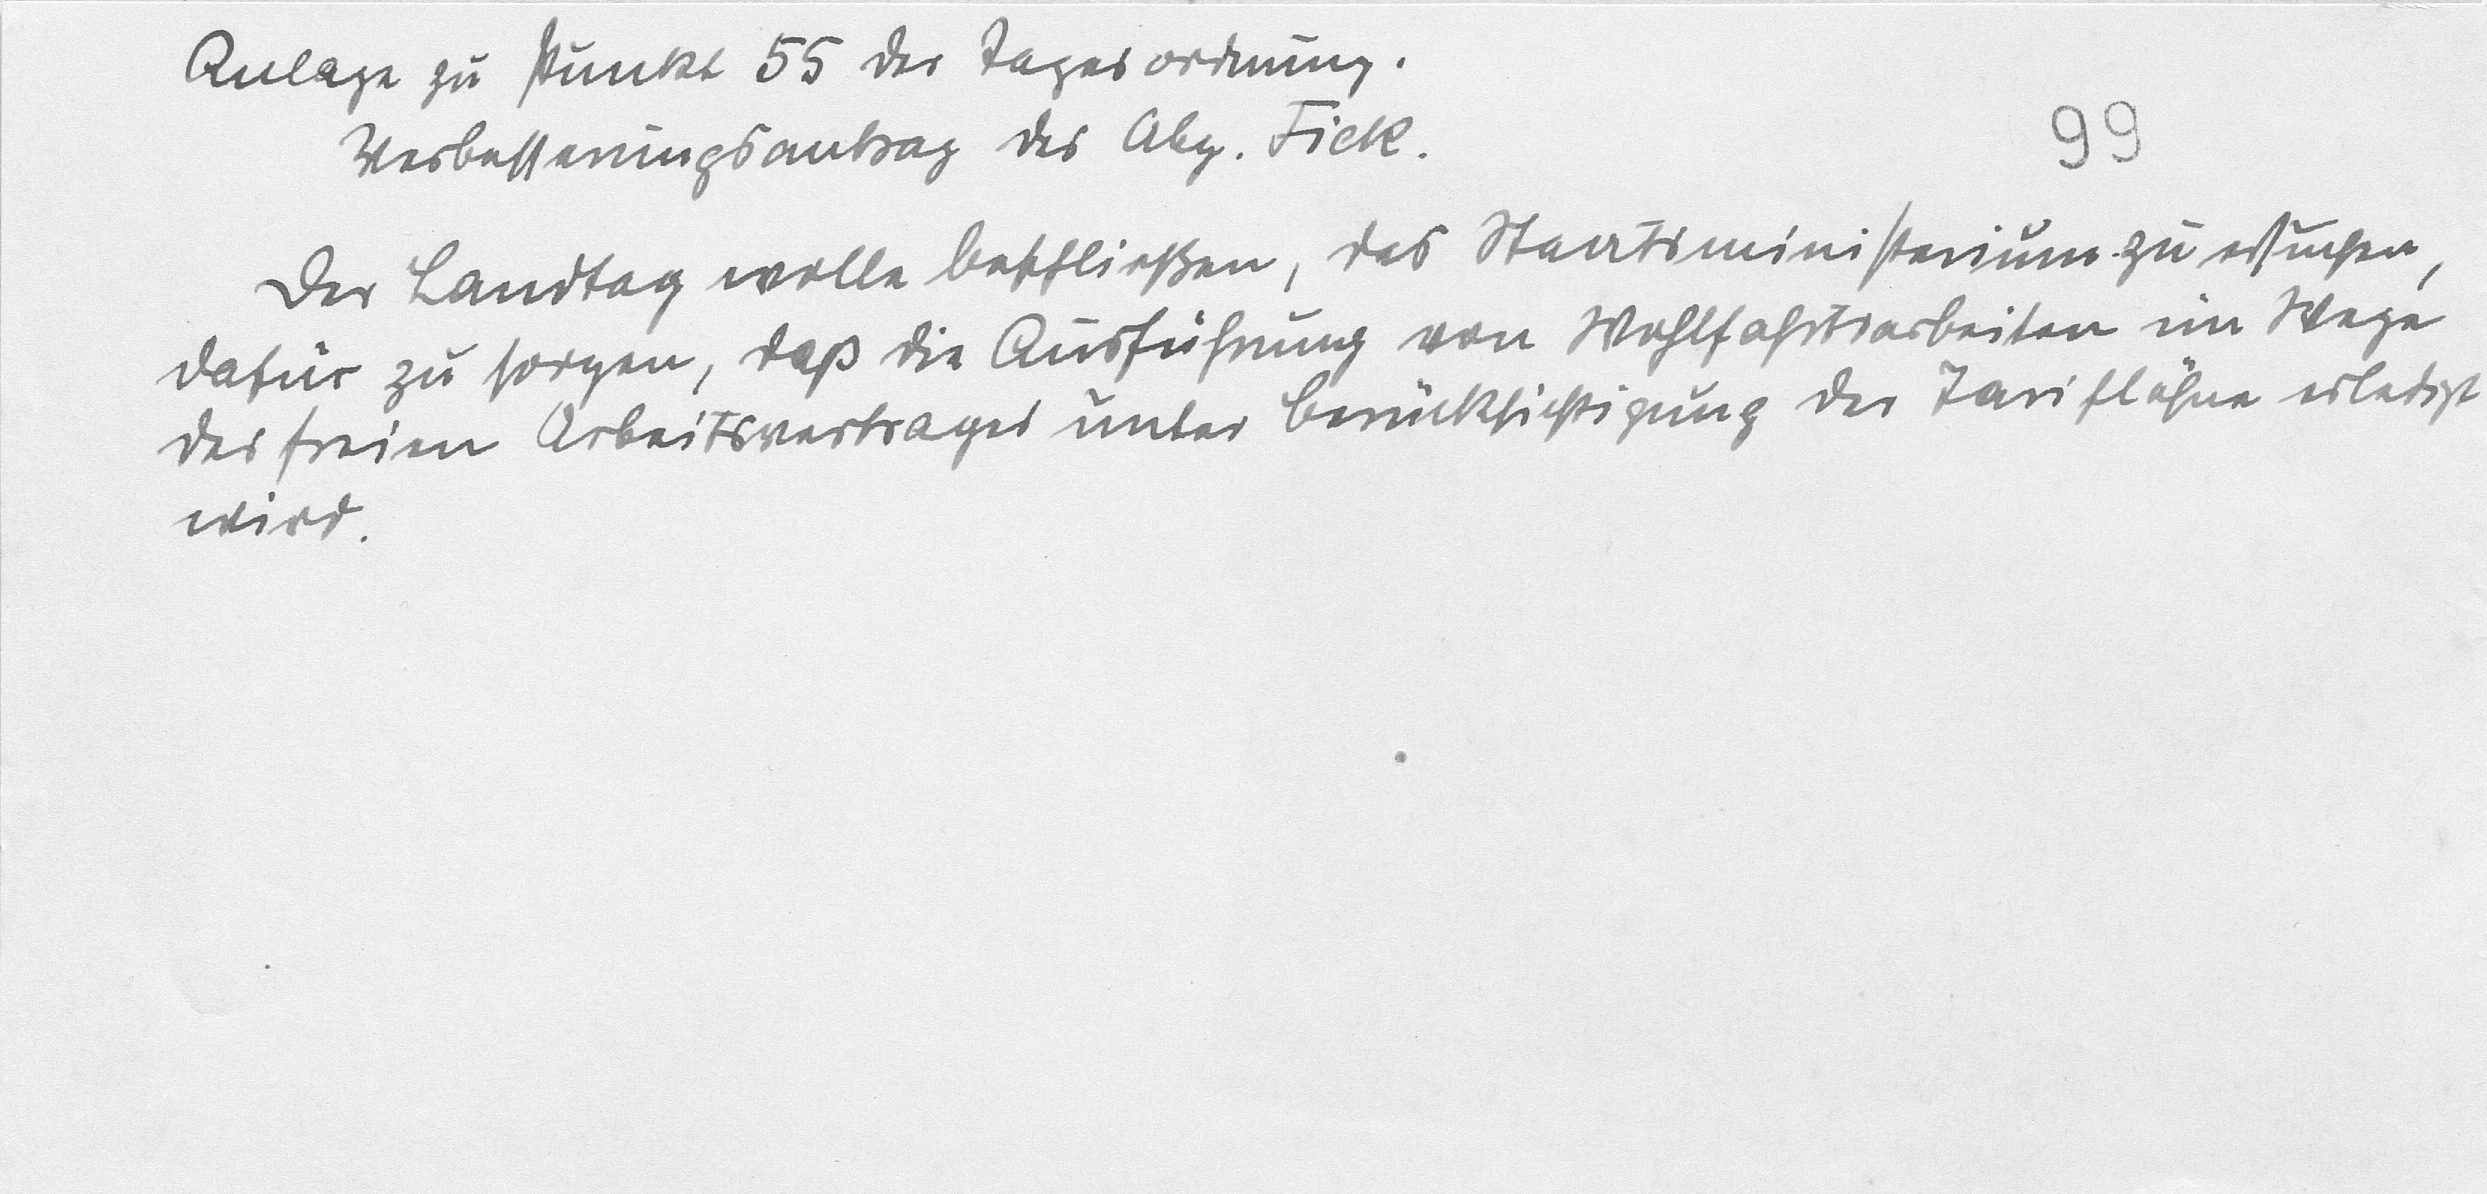 Anlage zu Punkt 55 der Tagesordnung.
Verbesserungsantrag des Abg. Fick.
99
Der Landtag wolle beschließen, das Staatsministerium zu ersuchen,
dafür zu sorgen, daß die Ausführung von Wohlfahrtsarbeiten im Wege
des freien Arbeitsvertrages unter Berücksichtigung der Tariflöhne erledigt
wird.